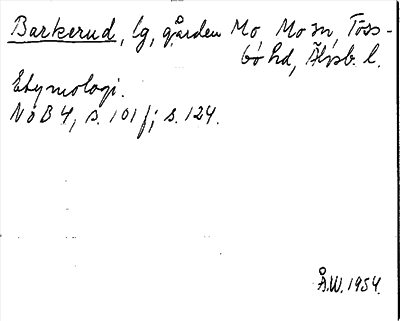 Barkerud, lg, gården Mo Mo sn, Töss-
bo hd, Älvsb. l.
Etymologi.
NoB 4, s. 101 f; s. 124.
Å.W. 1954.